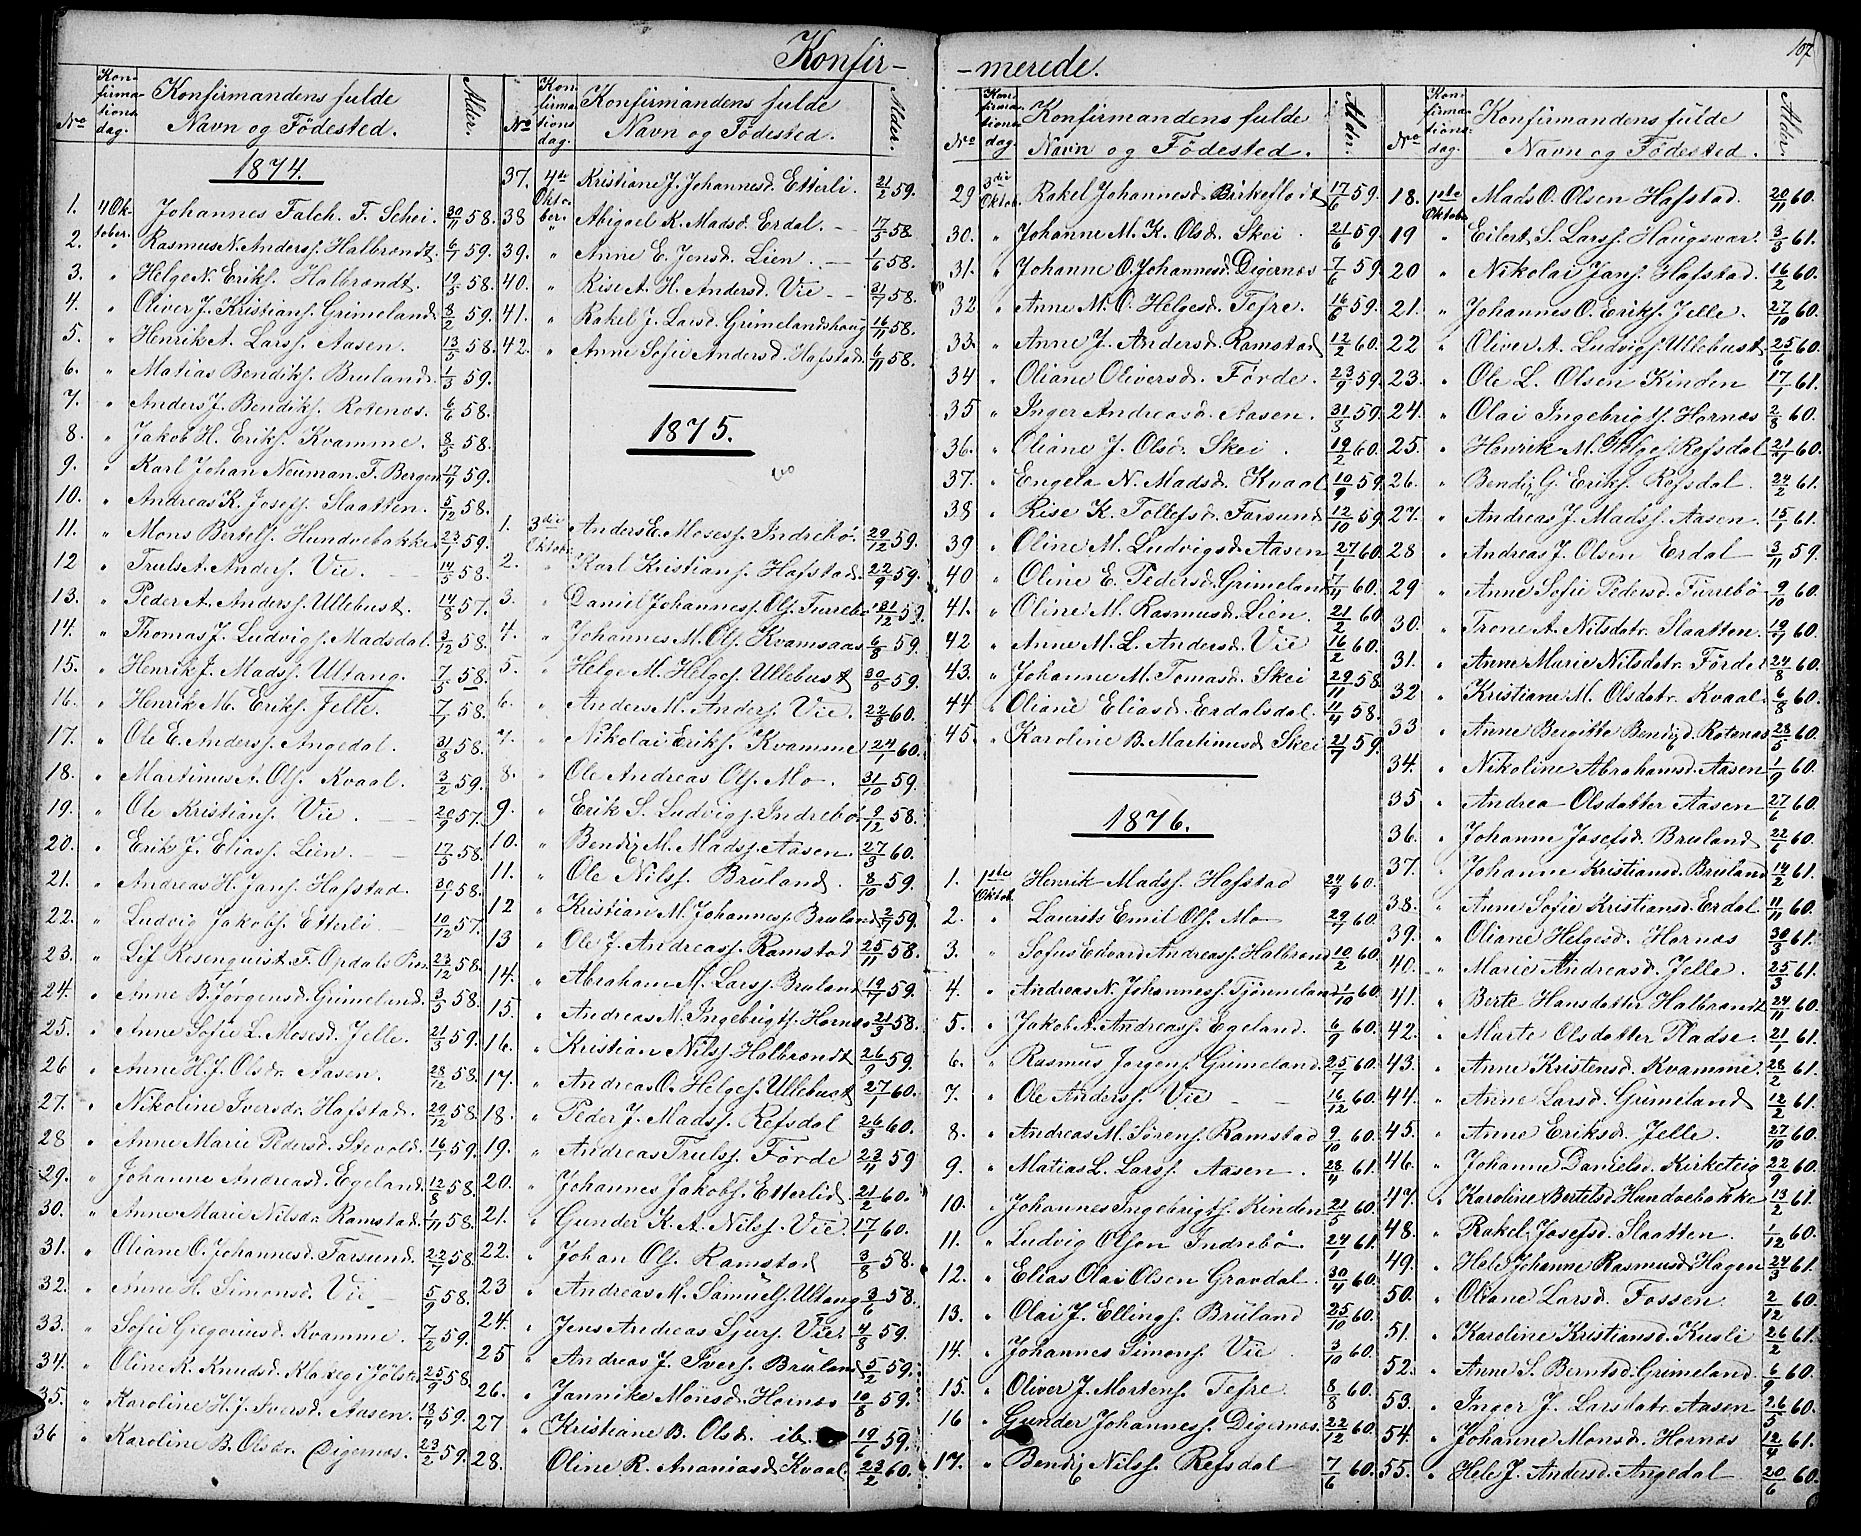 Konfir-
No Konfirmationsdag. Konfirmandens fulde Navn og Födested. Alder.
1874.
1. 4 Oktober. Johannes Falch. F. Schei. 30/11 58.
2. " Rasmus N. Anderss. Halbrendt. 6/7 59.
3. " Helge N. Eriks. Halbrendt. 19/5 58.
4. " Oliver J. Kristians. Grimeland. 3/2 59.
5. " Henrik A. Larss. Aasen. 13/5 58.
6. " Matias Bendiks. Bruland. 1/3 59.
7. " Anders J. Bendiks. Rotenæs. 6/6 58.
8. " Jakob H. Eriks. Kvamme. 8/5 58.
9. " Karl Johan Neuman. F. Bergen 17/4 59.
10. " Andreas K. Josefs. Slaatten. 5/12 58.
11. " Mons Bertels. Hundvebakke 23/1 59.
12 " Truls A. Anders. Vie. 14/5 58.
13. " Peder A. Anderss. Ullebust. 14/8 57.
14. " Thomas J. Ludvigs. Madsdal. 3/12 58.
15. " Henrik J. Madss. Ultang. 7/5 58.
16. " Henrik M. Eriks. Jelle. 7/1 58.
17. " Ole E. Anderss. Angedal. 31/8 58.
18. " Martinus A. Ols. Kvaal. 3/2 59.
19. " Ole Kristians. Vie. 20/9 57.
20. " Erik J. Eliass. Lien. 17/5 58.
21. " Andreas H. Jans. Hafstad. 30/7 58.
22. " Ludvig Jakobs. Etterli. 10/12 57.
23. " Lif Rosenquist. F. Opdals Præ. 23/12 58.
24. " Anne B. Jörgensd. Grimeland. 3/5 58.
25. " Anne Sofie L. Mosesd. Jelle. 21/3 59.
26 " Anne H. J. Olsdr. Aasen. 28/12 58.
27. " Nikoline Iversdr. Hafstad. 29/12 58.
28 " Anne Marie Pedersd. Stevold. 16/7 59.
29. " Johanne Andreasd. Egeland. 12/8 58.
30. " Anne Marie Nilsdr. Ramstad. 1/11 58.
31. " Oliane O. Johannesd. Farsund. 22/7 58.
32. " Anne H. Simonsd. Vie 5/9 58.
33. " Sofie Gregoriusd. Kvamme. 7/2 59.
34. " Oline K. Knudsd. Klakeg i Jölst. 25/9 58.
35. " Karoline H. J. Iversd. Aasen. 18/4 59.
36 " Karoline B. Olsdr. Digernæs. 23/2 59.
No Konfirmationsdag. Konfirmandens fulde Navn og Födested. Alder.
37. 4de Oktober. Kristiane J. Johannesd. Etterli. 21/2 59.
38 " Abigael K. Madsd. Erdal. 17/5 58
39. " Anne E. Jensd. Lien. 1/6 58.
40. " Rise A. H. Andersd. Vie 31/7 58.
41. " Rakel J. Larsd. Grimelandshaug 16/11 58.
42. " Anne Sofie Andersd. Hafstad. 6/11 58.
1875.
1. 3die Oktob. Anders E. Mosess. Indrebö. 29/12 59.
2. " Karl Kristians. Hafstad. 22/9 59.
3. " Daniel Johanness. Ols. Furrebö 31/12 59.
4. " Johannes M. Ols. Kvamsaas 6/8 59.
5. " Helge M. Helges. Ullebust 30/5 59.
6. " Anders M. Anders. Vie. 22/5 60.
7. " Nikolai Eriks. Kvamme 24/1 60.
8. " Ole Andreas Ols. Mo. 31/10 59.
9. " Erik S. Ludvigs. Indrebö. 9/12 58.
10. " Bendix M. Madss. Aasen. 27/3 60.
11. " Ole Nilss. Bruland. 8/10 59.
12 " Kristian M. Johanness. Bruland 2/7 59.
13 " Ole J. Andreass. Ramstad 25/11 58.
14. " Abraham M. Larss. Bruland 19/7 59.
15. " Andreas M. Ingebrigts. Hornæs 21/3 58.
16. " Kristian Nilss. Halbrendt 26/9 59.
17. " Andreas O. Helges. Ullebust 27/1 60.
18. " Peder J. Madss. Refsdal 26/3 60.
19. " Andreas Trulss. Förde 23/4 59
20. " Johannes Jakobs. Etterlid 21/2 60.
21. " Gunder K. A. Nilss. Vie 17/1 60.
22. " Johan Ols. Ramstad 3/8 58.
23 " Andreas M. Samuels. Ultang 3/6 58.
24. " Jens Andreas Sjurs. Vie. 4/8 59.
25 " Andreas J. Ivers. Bruland 5/2 59.
26. " Jannike Monsd. Hornæs 10/8 59.
27 " Kristiane B. Olsd. ib. 19/6 59.
28. Oline R. Ananiasd. Kvaal. 23/2 60.
-merede.
107
No Konfirmationsdag. Konfirmandens fulde Navn og Födested. Alder.
29 3die Oktob. Rakel Johannesd. Birkeflöit 17/6 59.
30. " Johanne M. K. Olsd. Skei 21/6 59.
31. " Johanne O. Johannesd. Digernæs 7/6 59.
32 " Anne M. O. Helgesd. Tefre. 16/6 59.
33. " Anne J. Andersd. Ramstad 12/2 60.
34 " Oliane Oliversd. Förde. 23/9 59.
35 " Inger Andreasd. Aasen. 31/3 59.
36. " Oliane J. Olsd. Skei 19/2 60.
37. " Engela N. Madsd. Kvaal 10/9 59.
38 " Rise K. Tollefsd. Farsund 12/10 59.
39 " Oline M. Ludvigsd. Aasen 27/1 60.
40 " Oline E. Pedersd. Grimeland 7/4 60.
41. " Oline M. Rasmusd. Lien. 21/2 60.
42 " Anne M. L. Andersd. Vie 16/2 60.
43. " Johanne M. Tomasd. Skei 29/11 58.
44 " Oliane Eliasd. Erdalsdal. 11/4 58.
45. " Karoline B. Martinusd. Skei 21/7 59.
1876.
1. 1ste Oktob. Henrik Madss. Hafstad 24/9 60.
2. " Laurits Emil Ols. Mo 29/7 60.
3. " Sofus Edvard Andreass. Halbrend 10/2 60.
4. " Andreas N. Johanness. Tjönneland 1/10 60.
5. " Jakob A. Andreass. Egeland. 6/9 60.
6. " Rasmus Jörgens. Grimeland. 25/7 60.
7. " Ole Anderss. Vie 16/12 60.
8. " Andreas M. Sörens. Ramstad 9/10 60.
9. " Matias L. Larss. Aasen. 28/4 61.
10. " Johannes Ingebrigts. Kinden 21/5 60.
11. " Ludvig Olson Indrebö 24/1 61.
12. " Elias Olai Olsen Gravdal. 30/4 60.
13. " Olai J. Ellings. Bruland 25/10 60.
14. " Johannes Simons. Vie 3/10 60.
15. " Oliver J. Mortens. Tefre. 8/8 60.
16 " Gunder Johanness. Digernæs. 22/12 60.
17. " Bendix Nilss. Refsdal 7/6 60.
No Konfirmationsdag. Konfirmandens fulde Navn og Födested. Alder.
18. 1ste Oktob. Mads O. Olsen Hafstad. 20/11 60.
19 " Eilert S. Larss. Haugsvar. 3/5 61.
20 " Nikolai Jans. Hafstad. 16/2 60.
21. " Johannes O. Eriks. Jelle. 27/10 60.
22 " Oliver A. Ludvigs. Ullebust 25/6 60.
23. " Ole L. Olsen Kinden 17/1 61.
24. " Olai Ingebrigts. Hornæs 2/8 60.
25. " Henrik M. Helges. Refsdal 21/7 60.
26. " Bendix G. Eriks. Refsdal. 24/2 61.
27. " Andreas J. Madss. Aasen. 15/1 61.
28 " Andreas J. Olsen Erdal 3/11 59.
29 " Anne Sofie Pedersd. Furrebö 9/10 60.
30. " Trone A. Nilsdatr. Slaatten. 19/7 60.
31. " Anne Marie Nilsdatr. Förde. 24/8 60.
32 " Kristiane M. Olsdatr. Kvaal. 6/8 60.
33 " Anne Birgitte Bendixd. Rotenæs 28/5 60.
34. " Nikoline Abrahamsd. Aasen 1/9 60.
35 " Andrea Olsdatter Aasen 27/6 60.
36. " Johanne Josefsd. Bruland. 22/6 60.
37. " Johanne Kristiansd. Bruland 14/2 61.
38. " Anne Sofie Kristiansd. Erdal. 11/11 60.
39. " Oliane Helgesd. Hornæs 30/3 61.
40. " Marie Andreasd. Jelle. 25/3 61.
41. " Berte Hansdatter Halbrandt 24/11 60.
42. " Marte Olsdatter Pladse. 21/1 61.
43. " Anne Kristensd. Kvamme. 28/2 61.
44. " Anne Larsd. Grimeland 12/2 61.
45. " Anne Eriksd. Jelle. 27/10 60.
46. " Johanne Danielsd. Kirketeig 22/9 60.
47. " Karoline Bertelsd. Hundvebakke 13/2 61.
48. " Rakel Josefsd. Slaatten 1/12 60.
49. " Hele S. Johanne Rasmusd. Hagen 24/3 61.
50. " Oliane Larsd. Fossen 2/12 60.
51. " Karoline Kristiansd. Kusli 26/2 61.
52. " Anne S. Berntsd. Grimeland. 6/9 60.
53. " Inger J. Larsdatr. Aasen 26/5 60.
54. " Johanne Monsd. Hornæs 12/4 61.
55. " Hele J. Andersd. Angedal 20/6 60.